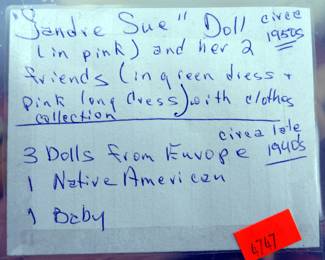 "Sandie Sue" Doll circa 1950s
(in pink) and her 2
friends (in green dress +
pink long dress) with clothes
collection
circa late
3 Dolls from Europe 1940s
1 Native American
1 Baby
6767